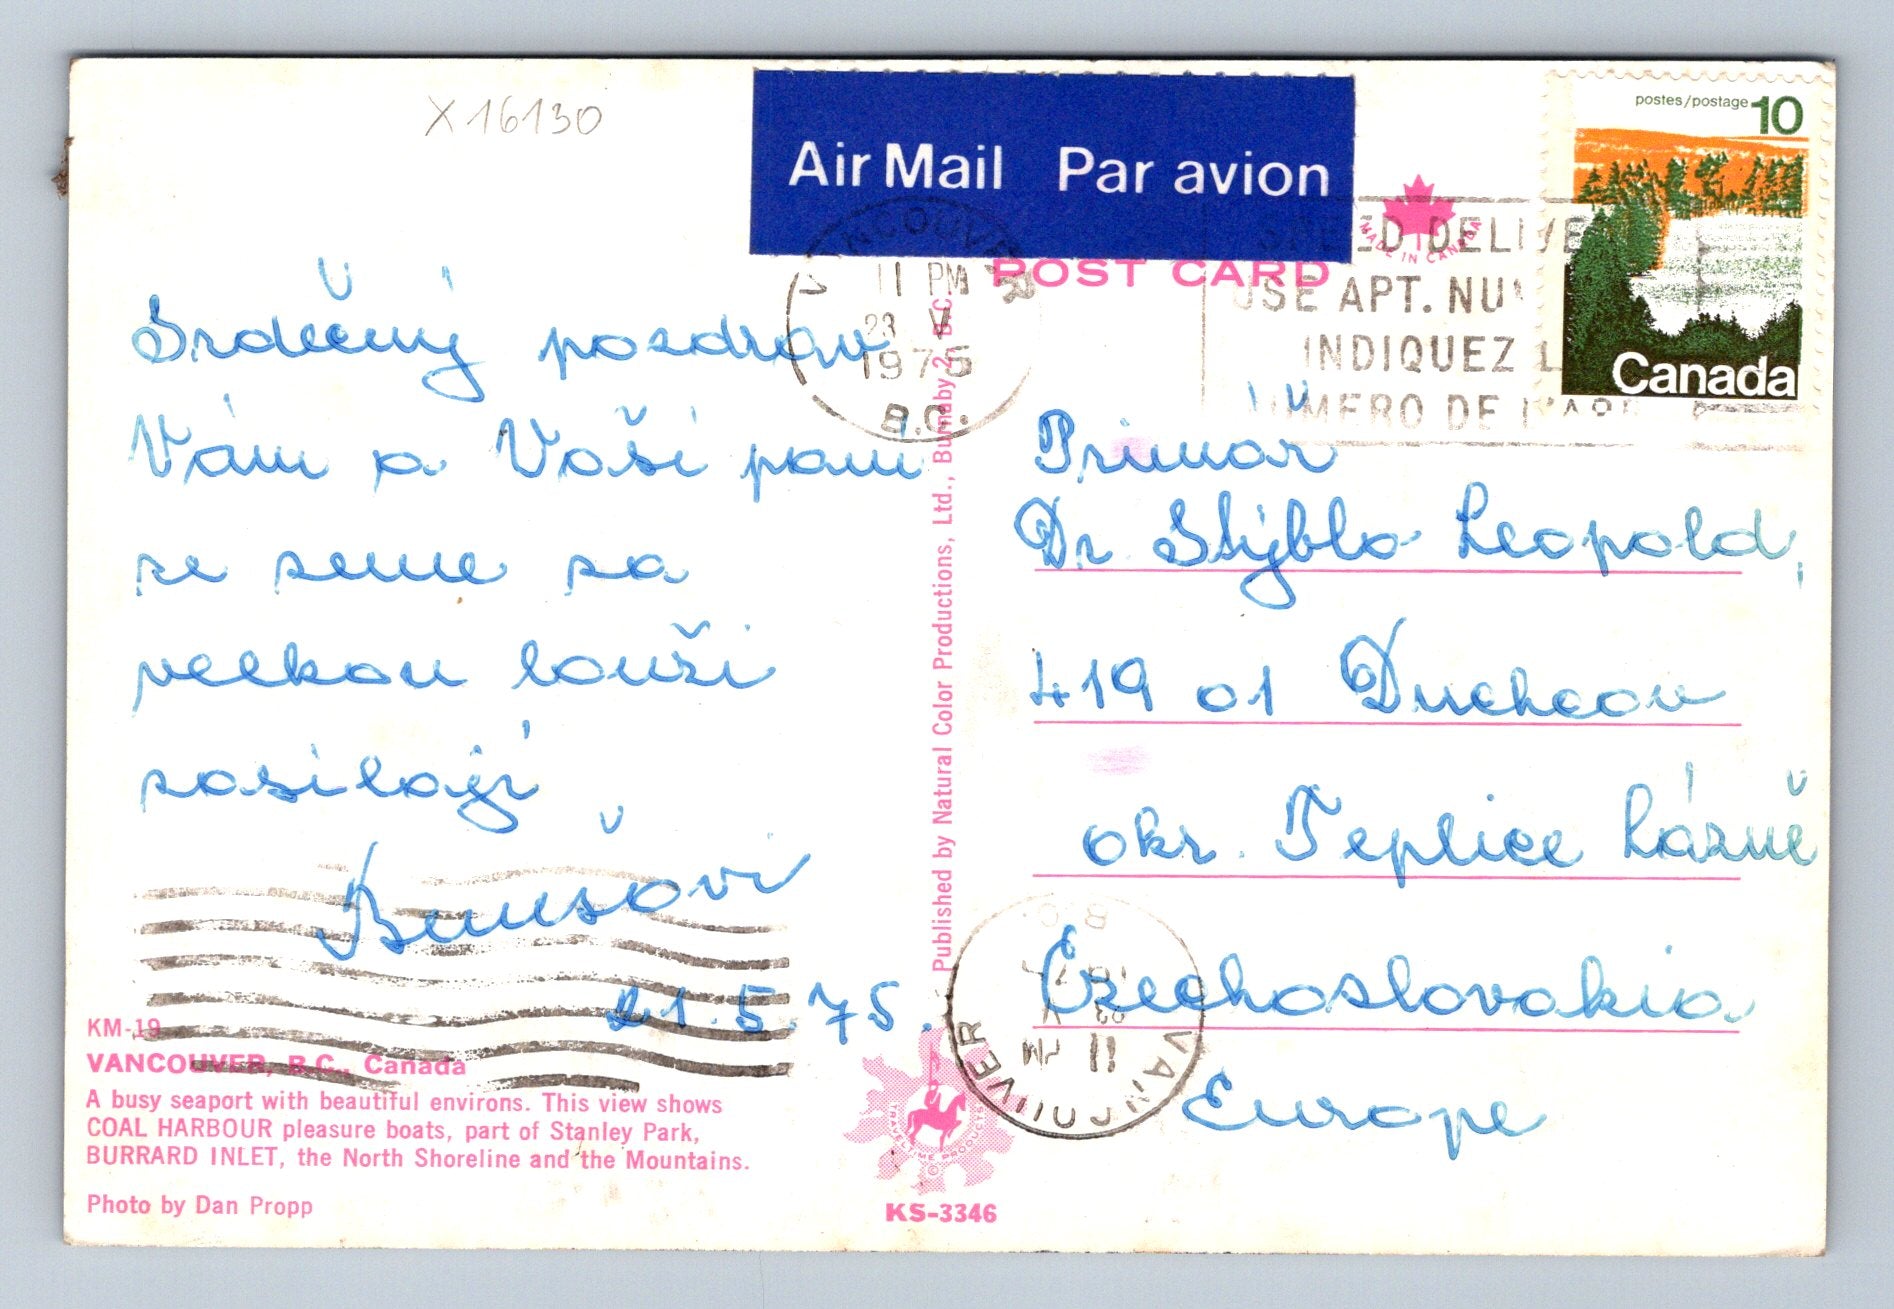 X 16130
Air Mail Par avion
postes/postage 10
Canada
MADE IN CANADA
POST CARD
VANCOUVER
11 PM
23 V
1975
B.C.
SPEED DELIVE
USE APT. NU
INDIQUEZ L
NUMERO DE L'AP
Srdečný pozdrav
Vám a Vaší paní
ze země za
velkou louží
zasílají
Benešovi
21.5.75.
Primář
Dr Stýblo Leopold,
419 01 Duchcov
okr. Teplice Lázně
Czechoslovakia
Europe
Published by Natural Color Productions, Ltd., Burnaby 2, B.C.
VANCOUVER
11 PM
23 V
B.C.
KM-19
VANCOUVER, B.C., Canada
A busy seaport with beautiful environs. This view shows
COAL HARBOUR pleasure boats, part of Stanley Park,
BURRARD INLET, the North Shoreline and the Mountains.
Photo by Dan Propp
TRAVELTIME PRODUCTS
©
KS-3346